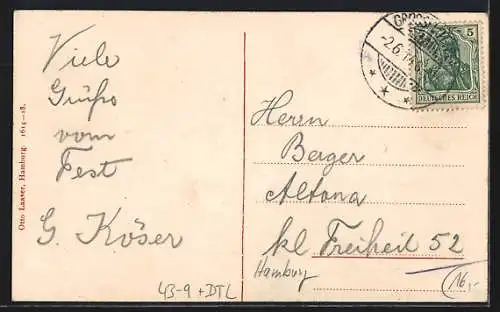 Viele
Grüße
vom
Fest
G. Köser
Otto Laaser, Hamburg. 1614—18.
5
DEUTSCHES REICH
Herrn
Berger
Altona
kl Freiheit 52
Hamburg
43-9 + DTL
16,-